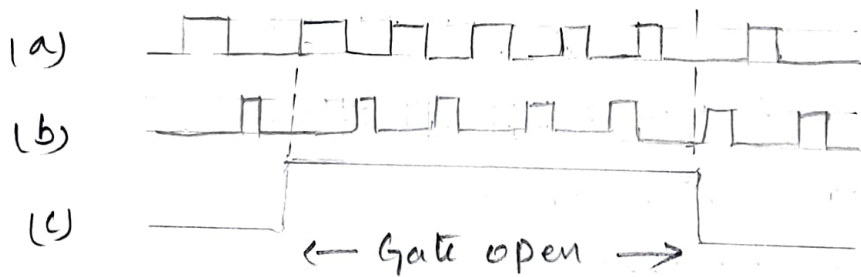 (a)
(b)
(c)
← Gate open →